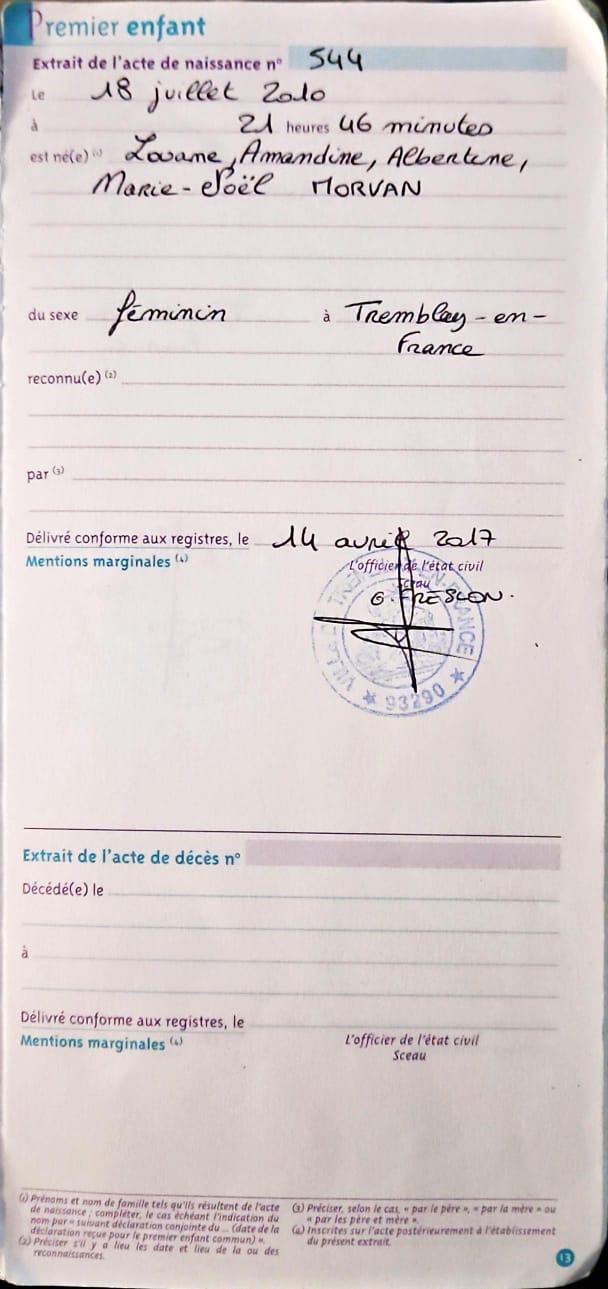 Premier enfant
Extrait de l'acte de naissance n° 544
Le 18 juillet 2010
à 21 heures 46 minutes
est né(e) (1) Louane, Amandine, Albertine,
Marie-Noël MORVAN
du sexe féminin à Tremblay-en-
France
reconnu(e) (2)
par (3)
Délivré conforme aux registres, le 14 avril 2017
Mentions marginales (4) L'officier de l'état civil
Sceau
G. FRESLON.
VILLE DE TREMBLAY-EN-FRANCE
★ 93290 ★
Extrait de l'acte de décès n°
Décédé(e) le
à
Délivré conforme aux registres, le
Mentions marginales (4) L'officier de l'état civil
Sceau
(1) Prénoms et nom de famille tels qu'ils résultent de l'acte
de naissance ; compléter, le cas échéant l'indication du
nom par « suivant déclaration conjointe du ... (date de la
déclaration reçue pour le premier enfant commun) ».
(2) Préciser s'il y a lieu les date et lieu de la ou des
reconnaissances.
(3) Préciser, selon le cas, « par le père », « par la mère » ou
« par les père et mère ».
(4) Inscrites sur l'acte postérieurement à l'établissement
du présent extrait.
13